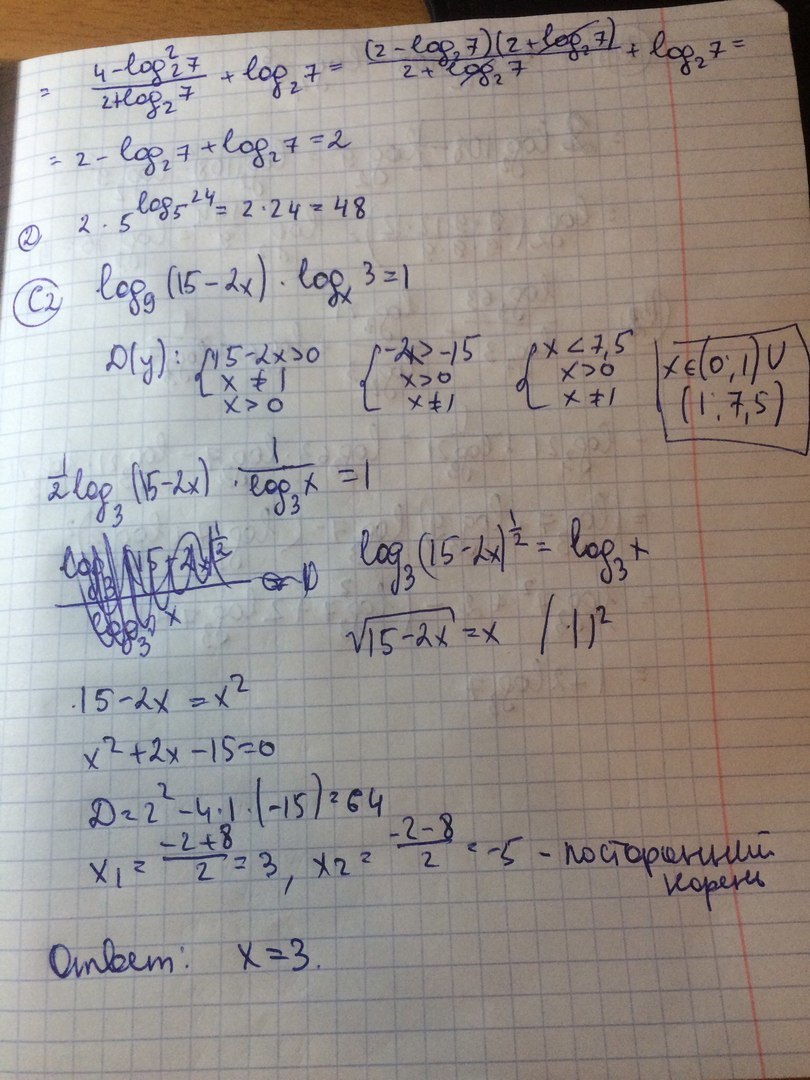 = (4-log₂²7)/(2+log₂7) + log₂7 = ((2-log₂7)(2+log₂7))/(2+log₂7) + log₂7 =
= 2 - log₂7 + log₂7 = 2
② 2 · 5^(log₅24) = 2 · 24 = 48
C2 log₉(15-2x) · logₓ3 = 1
D(y): { 15-2x>0 { -2x>-15 { x<7,5 x∈(0;1)∪
x≠1 x>0 x>0 (1;7,5)
x>0 x≠1 x≠1
1/2 log₃(15-2x) · 1/(log₃x) = 1
log₃(15-2x)^(1/2) = log₃x
√(15-2x) = x /( )²
15-2x = x²
x²+2x-15=0
D=2²-4·1·(-15)=64
x₁ = (-2+8)/2 = 3, x₂ = (-2-8)/2 = -5 - посторонний
корень
Ответ: x=3.